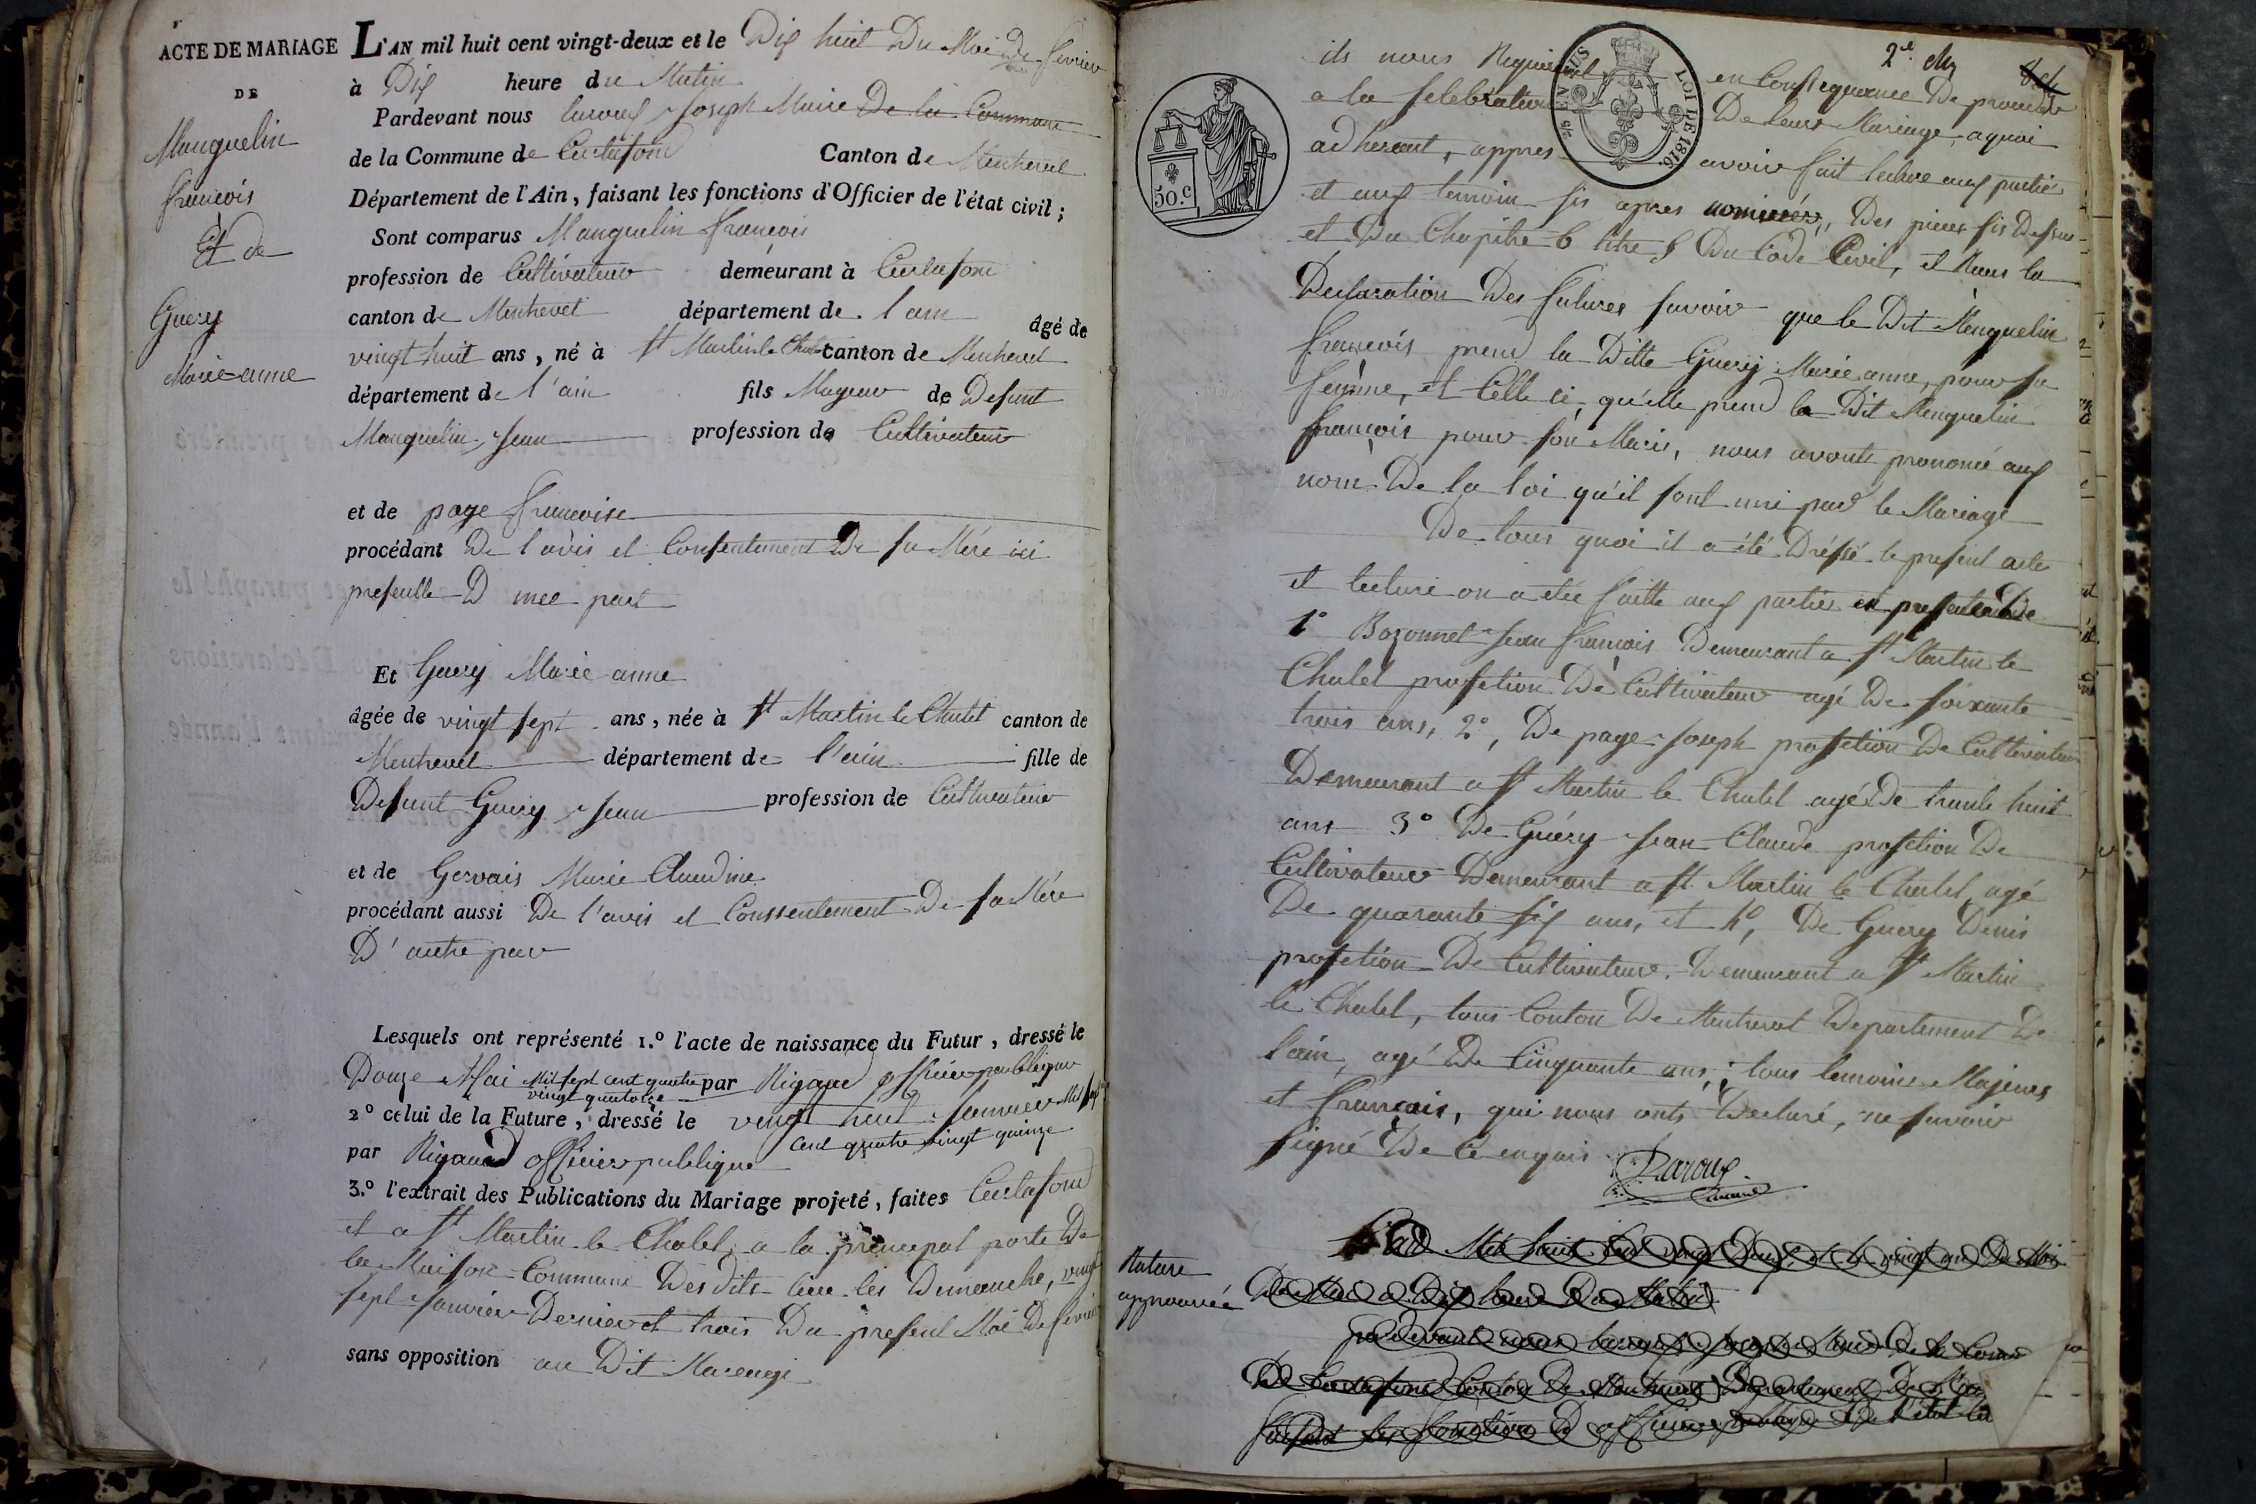 ACTE DE MARIAGE
DE
Manguelin
françois
Et de
Guery
Marie-anne
L'AN mil huit cent vingt-deux et le Dix huit Du Moi De fevrier
à Dix heure du Matin
Pardevant nous Joseph Maire De la Commune
de la Commune de Curtafond Canton de Montrevel
Département de l'Ain, faisant les fonctions d'Officier de l'état civil;
Sont comparus Manguelin françois
profession de Cultivateur demeurant à Curtafond
canton de Montrevel département de l'ain âgé de
vingt huit ans, né à St Martin le Chatel canton de Montrevel
département de l'ain fils Mageur de Defunt
Manguelin Jean profession de Cultivateur
et de page francoise
procédant De l'avis et Consentement De sa Mére ici
presentte D'une part
Et Guery Marie anne
âgée de vingt sept ans, née à St Martin le Chatel canton de
Montrevel département de l'ain fille de
Defunt Guery Jean profession de Cultivateur
et de Gervais Marie Claudine
procédant aussi De l'avis et Conssentement De sa Mére
D'autre par
Lesquels ont représenté 1.º l'acte de naissance du Futur, dressé le
Douze Mai Mil sept cent quatre vingt quatorze par Rigaud officier publique
2º celui de la Future, dressé le vingt huit Janvier Mil sept
cent quatre vingt quinze
par Rigaud officier publique
3.º l'extrait des Publications du Mariage projeté, faites Curtafond
et a St Martin le Chatel, a la principal porte De
la Maison Commune Des dits lieu les Dimanche, vingt
sept Janvier Dernier et trois Du present Moi De fevrier
sans opposition au Dit Mareage
50.C
EN SUS
LOI DE 1816
2e
ils nous Requierent en Consequance De proceder
a la selebration De leurs Mariage, a quoi
adherant, appres avoir fait lecture aux partiés
et aux temoin sis apres nommées, Des pieces sis Dessus
et Du Chapitre 6 titre 5 Du Code Civil, et Reçus la
Declaration Des futures savoir que le Dit Menguelin
françois prend la Ditte Guery Marie anne, pour sa
femme, et Celle ci, qu'elle prend le Dit Menguelin
françois pour son Marie, nous avonts prononcé aux
nom De la loi qu'il sont uni par le Mariage
De tous quoi il a été Dréssé le present acte
et lecture on a étée faitte aux partiés en presence De
1º Bozonnet Jean françois Demeurant a St Martin le
Chatel profetion De Cultivateur agé De soixante
trois ans, 2º, De page Joseph profetion De Cultivateur
Demeurant a St Martin le Chatel agé De trante huit
ans 3º De Guéry Jean Claude profetion De
Cultivateur Demeurant a St Martin le Chatel, agé
De quarante six ans, et 4º, De Guery Denis
profetion De Cultivateur Demeurant a St Martin
le Chatel, tous Conton De Montrevel Departement De
l'ain, agé De Cinquante ans, tous temoins Majeurs
et français, qui nous onts Declaré, ne savoir
signé De Ce enquis
approuvée
L'an Mil huit Cent vingt Deux et le vingt un Du Moi
De a Dix heure Du Matin
pardevant nous Joseph Maire De la Com
De Curtafond Conton De Montrevel Departement De l'ain
faisant les fonction D'officier publique De l'etat Ci